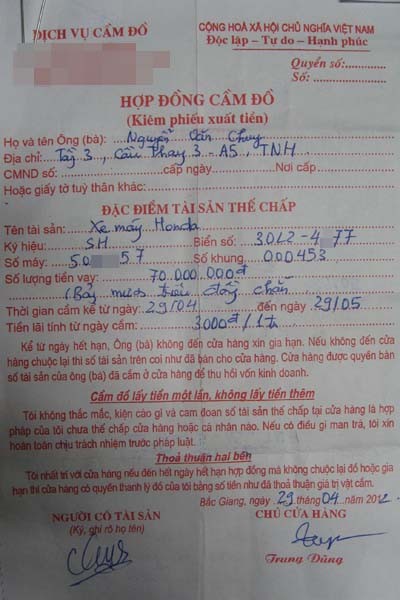 DỊCH VỤ CẦM ĐỒ
CỘNG HOÀ XÃ HỘI CHỦ NGHĨA VIỆT NAM
Độc lập – Tự do – Hạnh phúc
Quyển số:
Số:
HỢP ĐỒNG CẦM ĐỒ
(Kiêm phiếu xuất tiền)
Họ và tên Ông (bà): Nguyễn Văn Chung
Địa chỉ: Tầng 3, Cầu Thang 3 - A5, TNH
CMND số: cấp ngày Nơi cấp
Hoặc giấy tờ tuỳ thân khác:
ĐẶC ĐIỂM TÀI SẢN THẾ CHẤP
Tên tài sản: Xe máy Honda
Ký hiệu: SH Biển số: 30L2-4 77
Số máy: 50 57 Số khung 000453
Số lượng tiền vay: 70.000.000đ
(Bảy mươi triệu đồng chẵn)
Thời gian cầm kể từ ngày: 29/04 đến ngày 29/05
Tiền lãi tính từ ngày cầm: 3000đ/1tr
Kể từ ngày hết hạn, Ông (bà) không đến cửa hàng xin gia hạn. Nếu không đến cửa
hàng chuộc lại thì số tài sản trên coi như đã bán cho cửa hàng. Cửa hàng được quyền bán
số tài sản của ông (bà) đã cầm ở cửa hàng để thu hồi vốn kinh doanh.
Cầm đồ lấy tiền một lần, không lấy tiền thêm
Tôi không thắc mắc, kiện cáo gì và cam đoan số tài sản thế chấp tại cửa hàng là hợp
pháp của tôi chưa thế chấp cửa hàng hoặc cá nhân nào. Nếu có điều gì man trá, tôi xin
hoàn toàn chịu trách nhiệm trước pháp luật.
Thoả thuận hai bên
Tôi nhất trí với cửa hàng nếu đến hết ngày hết hạn hợp đồng mà không chuộc lại đồ hoặc gia
hạn thì cửa hàng có quyền thanh lý đồ của tôi bằng số tiền như đã thoả thuận giá trị vật cầm.
Bắc Giang, ngày 29 tháng 04 năm 2012
NGƯỜI CÓ TÀI SẢN
CHỦ CỬA HÀNG
(Ký, ghi rõ họ tên)
Trung Dũng